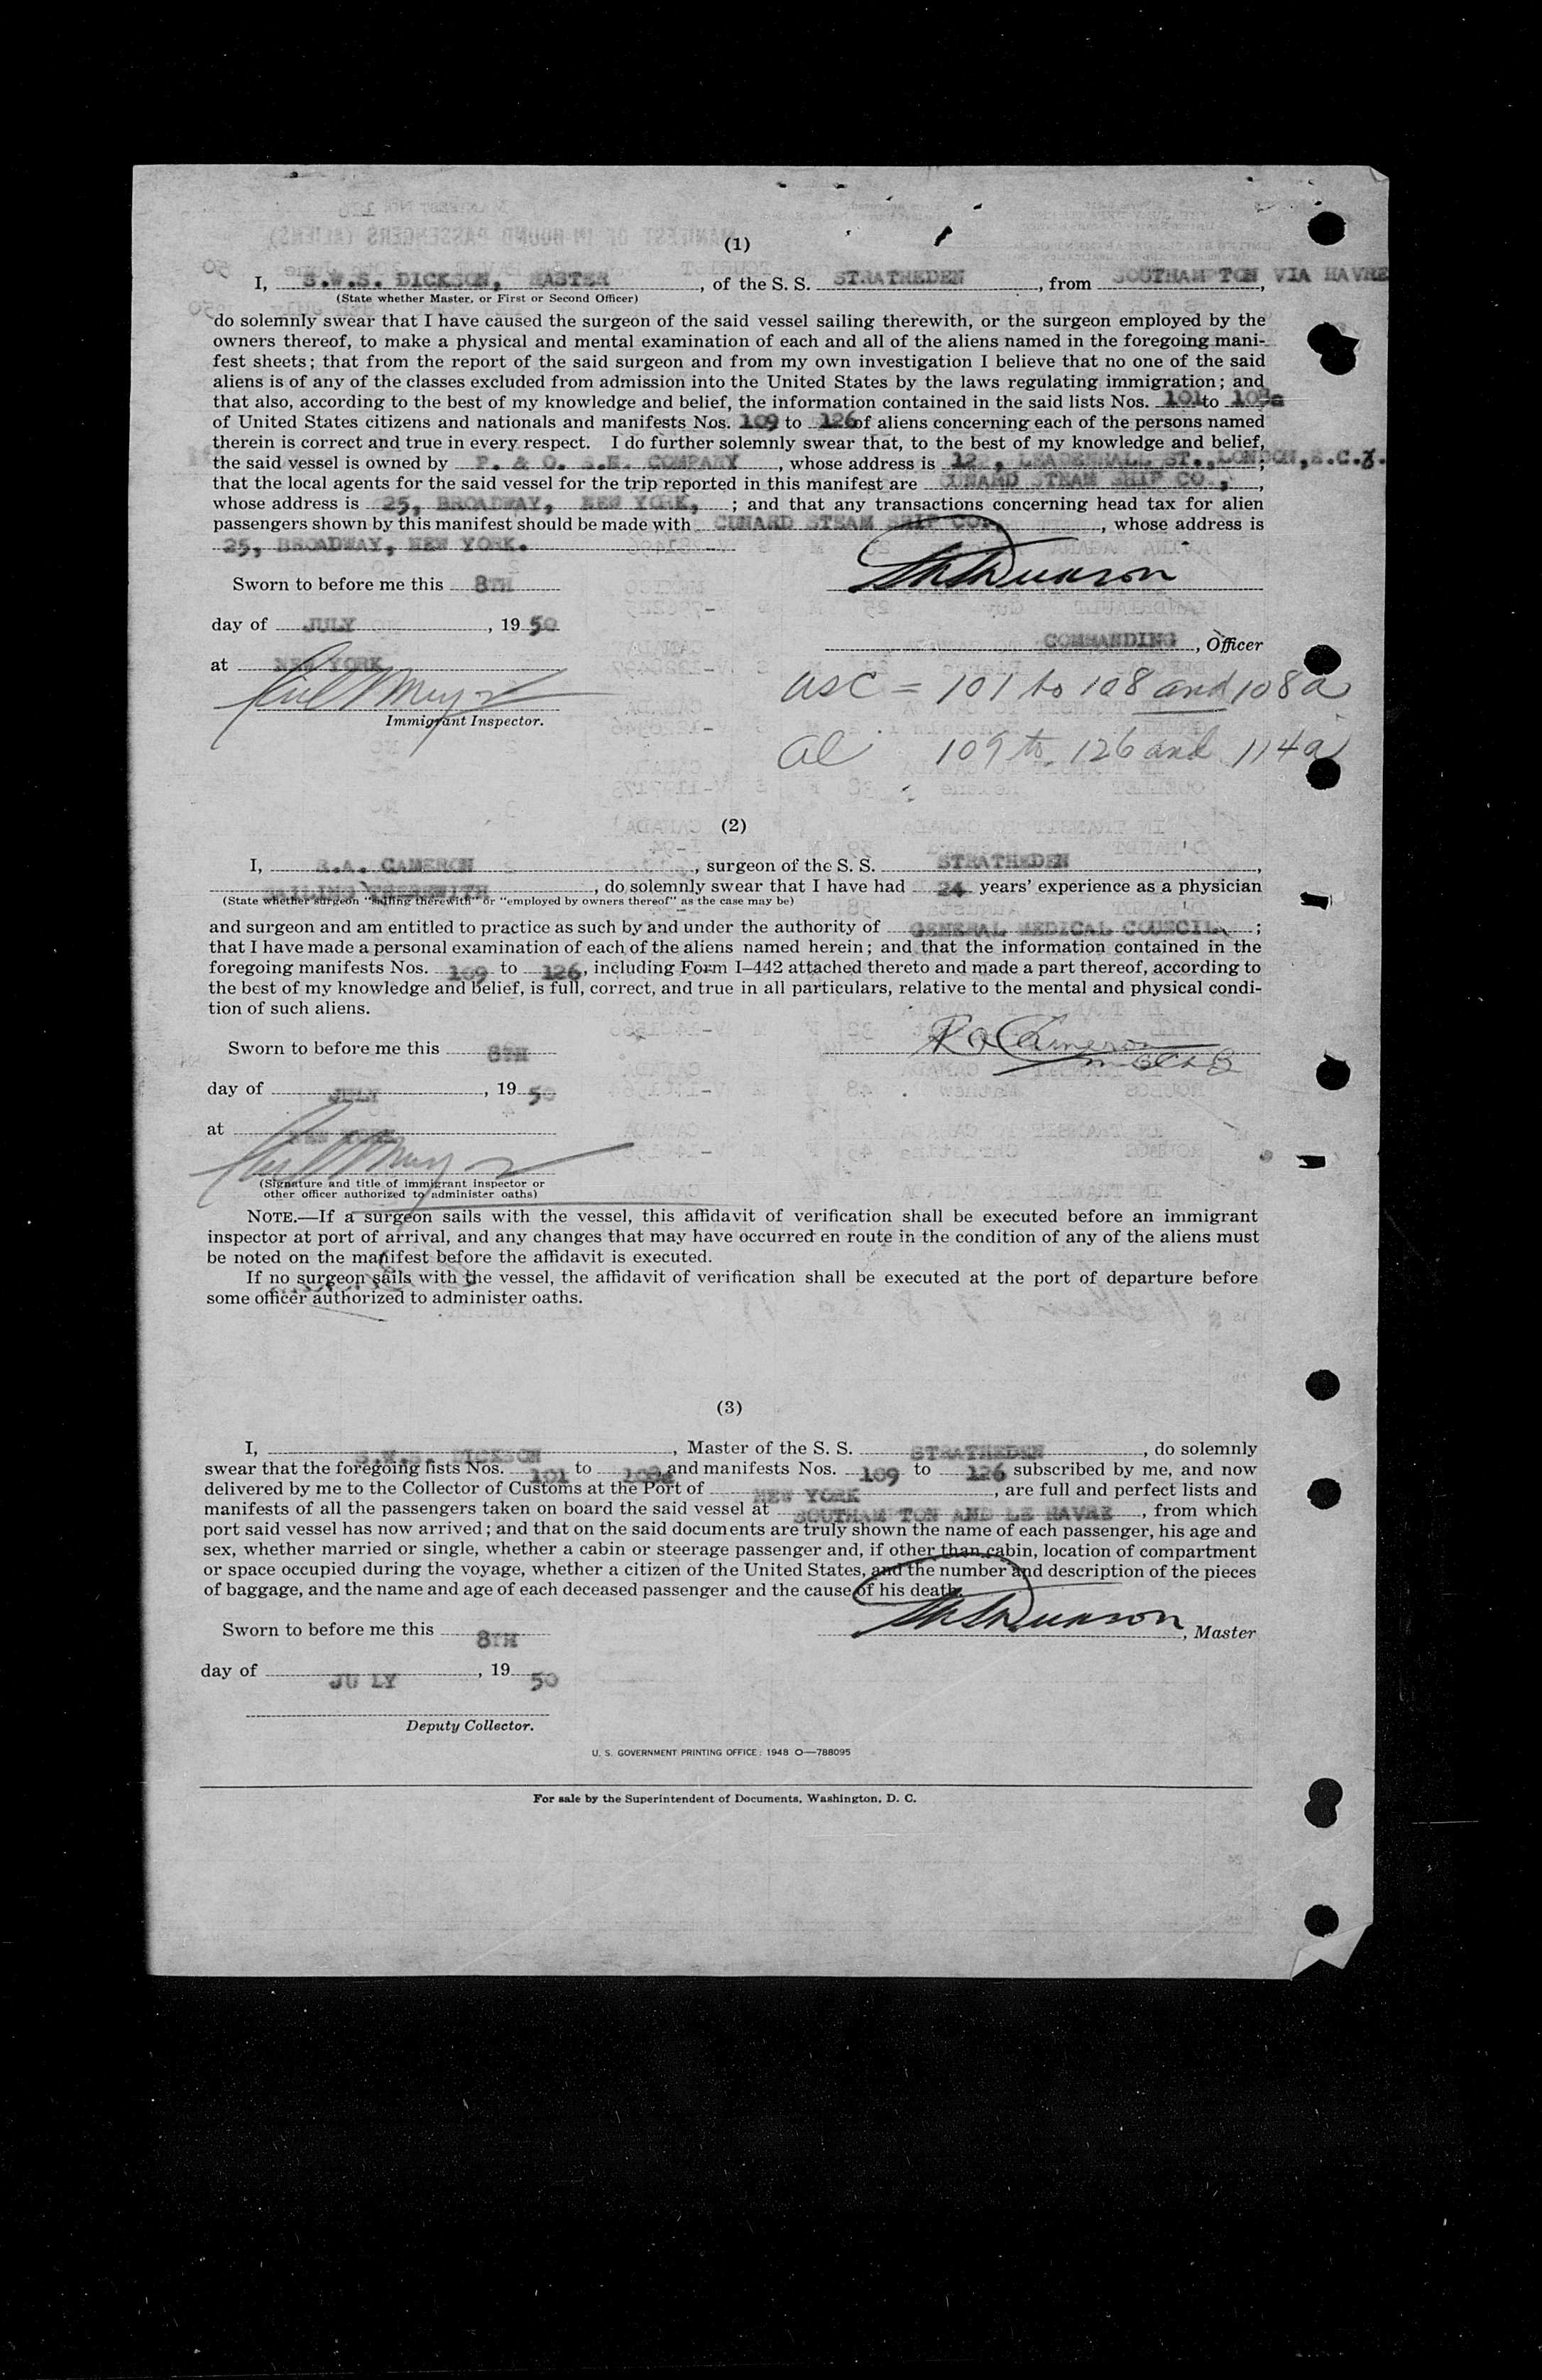 (1)
I, S.W.S. DICKSON, MASTER, of the S. S. STRATHEDEN, from SOUTHAMPTON VIA HAVRE,
(State whether Master, or First or Second Officer)
do solemnly swear that I have caused the surgeon of the said vessel sailing therewith, or the surgeon employed by the
owners thereof, to make a physical and mental examination of each and all of the aliens named in the foregoing mani-
fest sheets; that from the report of the said surgeon and from my own investigation I believe that no one of the said
aliens is of any of the classes excluded from admission into the United States by the laws regulating immigration; and
that also, according to the best of my knowledge and belief, the information contained in the said lists Nos. 101 to 108a
of United States citizens and nationals and manifests Nos. 109 to 126 of aliens concerning each of the persons named
therein is correct and true in every respect. I do further solemnly swear that, to the best of my knowledge and belief,
the said vessel is owned by P. & O. S.N. COMPANY, whose address is LEADENHALL ST., LONDON, E.C.3.;
that the local agents for the said vessel for the trip reported in this manifest are CUNARD STEAM SHIP CO.,
whose address is 25, BROADWAY, NEW YORK,; and that any transactions concerning head tax for alien
passengers shown by this manifest should be made with CUNARD STEAM SHIP CO., whose address is
25, BROADWAY, NEW YORK.
Sworn to before me this 8TH
day of JULY, 19 50
COMMANDING, Officer
at NEW YORK
USC = 101 to 108 and 108a
Immigrant Inspector.
al 109 to 126 and 114a
(2)
I, R.A. CAMERON, surgeon of the S. S. STRATHEDEN,
SAILING THEREWITH, do solemnly swear that I have had 24 years' experience as a physician
(State whether surgeon "sailing therewith" or "employed by owners thereof" as the case may be)
and surgeon and am entitled to practice as such by and under the authority of GENERAL MEDICAL COUNCIL;
that I have made a personal examination of each of the aliens named herein; and that the information contained in the
foregoing manifests Nos. 109 to 126, including Form I-442 attached thereto and made a part thereof, according to
the best of my knowledge and belief, is full, correct, and true in all particulars, relative to the mental and physical condi-
tion of such aliens.
R A Cameron
Sworn to before me this 8TH
day of JULY, 19 50
at NEW YORK
(Signature and title of immigrant inspector or
other officer authorized to administer oaths)
NOTE.—If a surgeon sails with the vessel, this affidavit of verification shall be executed before an immigrant
inspector at port of arrival, and any changes that may have occurred en route in the condition of any of the aliens must
be noted on the manifest before the affidavit is executed.
If no surgeon sails with the vessel, the affidavit of verification shall be executed at the port of departure before
some officer authorized to administer oaths.
(3)
I, S.W.S. DICKSON, Master of the S. S. STRATHEDEN, do solemnly
swear that the foregoing lists Nos. 101 to 108a and manifests Nos. 109 to 126 subscribed by me, and now
delivered by me to the Collector of Customs at the Port of NEW YORK, are full and perfect lists and
manifests of all the passengers taken on board the said vessel at SOUTHAMPTON AND LE HAVRE, from which
port said vessel has now arrived; and that on the said documents are truly shown the name of each passenger, his age and
sex, whether married or single, whether a cabin or steerage passenger and, if other than cabin, location of compartment
or space occupied during the voyage, whether a citizen of the United States, and the number and description of the pieces
of baggage, and the name and age of each deceased passenger and the cause of his death.
Sworn to before me this 8TH
, Master
day of JULY, 19 50
Deputy Collector.
U. S. GOVERNMENT PRINTING OFFICE: 1948 O—788095
For sale by the Superintendent of Documents, Washington, D. C.